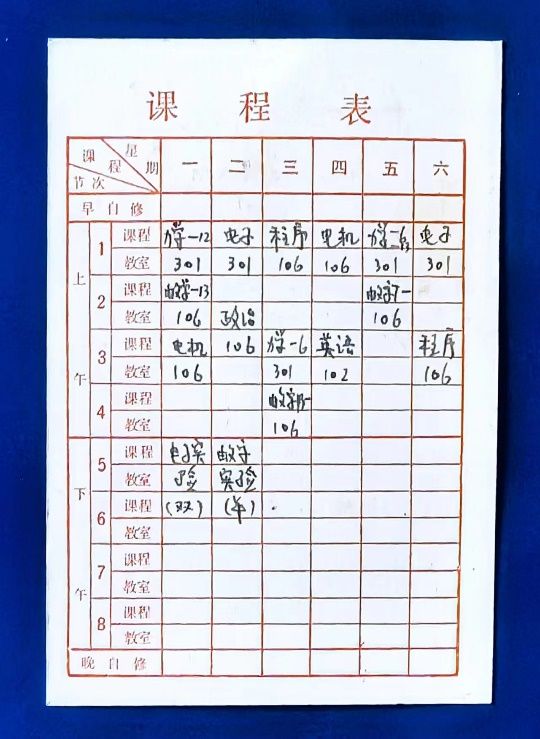 课程表
课程 星期 节次 一 二 三 四 五 六
早自修
上午
1 课程 电子 程序 电机 电子
教室 301 301 106 106 301 301
2 课程
教室 106 政治 106
3 课程 电机 106 英语 程序
教室 106 301 102 106
4 课程
教室 106
下午
5 课程 电子实
教室 验 实验
6 课程 (双) (单)
教室
7 课程
教室
8 课程
教室
晚自修